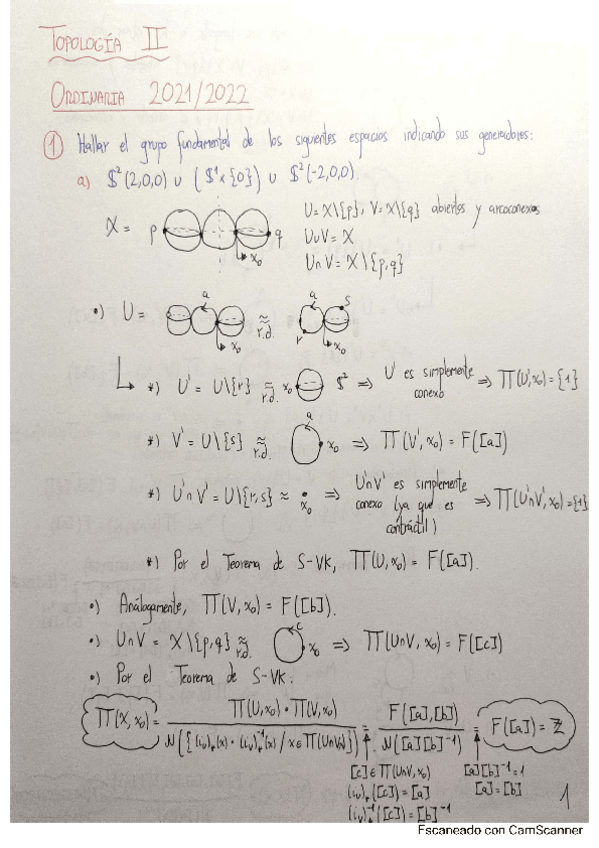 TOPOLOGÍA II
ORDINARIA 2021/2022
① Hallar el grupo fundamental de los siguientes espacios indicando sus generadores:
a) $²(2,0,0) ∪ ($¹×{0}) ∪ $²(-2,0,0).
X = p q x₀
U = X\{p}, V = X\{q} abiertos y arcoconexos
U∪V = X
U∩V = X\{p,q}
•) U = a x₀ ≈ r.d. a s r x₀
*) U' = U\{r} ≈ r.d. x₀ $² ⇒ U' es simplemente conexo ⇒ Π(U',x₀) = {1}
*) V' = U\{s} ≈ r.d. a x₀ ⇒ Π(V',x₀) = F([a])
*) U'∩V' = U\{r,s} ≈ • x₀ ⇒ U∩V' es simplemente conexo (ya que es contráctil) ⇒ Π(U'∩V',x₀) = {1}
*) Por el Teorema de S-VK, Π(U,x₀) = F([a]).
•) Análogamente, Π(V,x₀) = F([b]).
•) U∩V = X\{p,q} ≈ r.d. c x₀ ⇒ Π(U∩V,x₀) = F([c])
•) Por el Teorema de S-VK:
Π(X,x₀) = Π(U,x₀) * Π(V,x₀) / N({(i_U)_*(x) · (i_V)_*⁻¹(x) / x∈Π(U∩V)}) = F([a],[b]) / N([a][b]⁻¹) = F([a]) = ℤ
[c]∈Π(U∩V,x₀) [a][b]⁻¹=1
(i_U)_*([c]) = [a] [a]=[b]
(i_V)_*⁻¹([c]) = [b]⁻¹
1
Escaneado con CamScanner